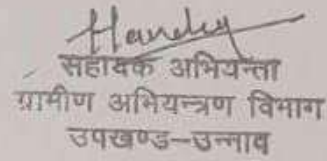 सहायक अभियन्ता
ग्रामीण अभियन्त्रण विभाग
उपखण्ड-उन्नाव